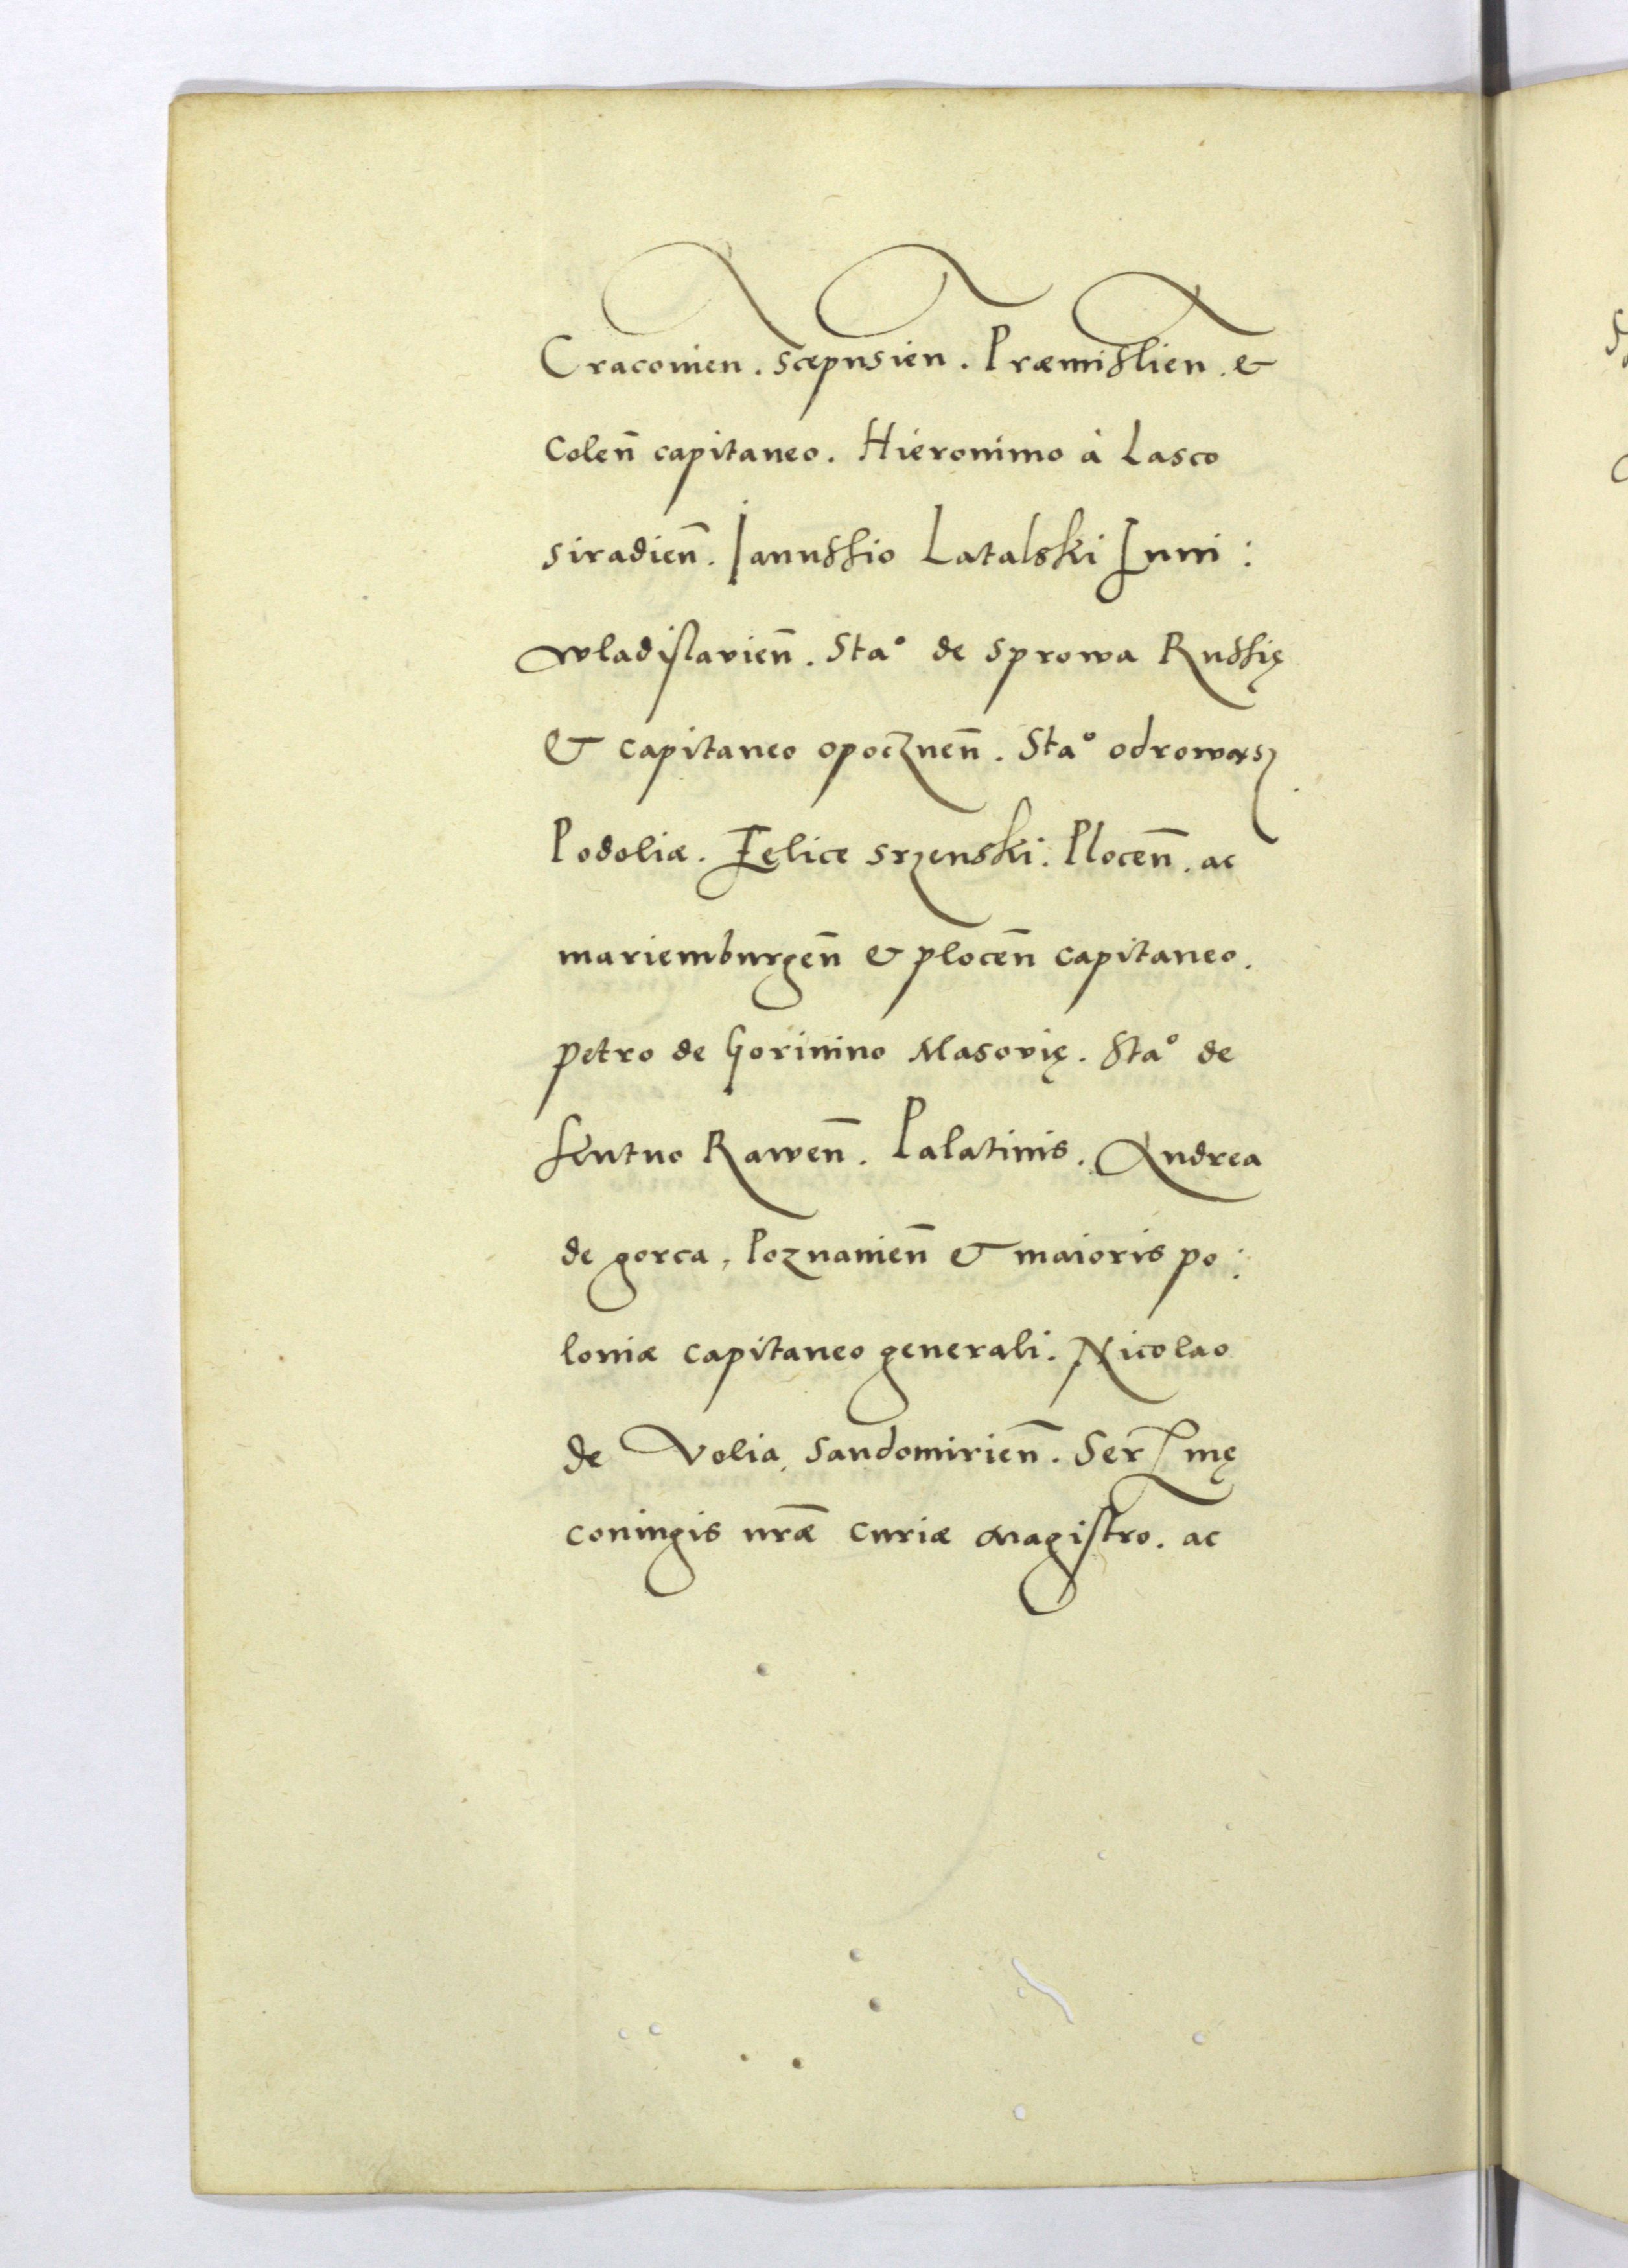 Cracouien. scepusien. Præmislien. &
Coleñ capitaneo. Hieronimo à Lasco
siradieñ. Ianussio Latalski Iuni:
wladislavieñ. Sta° de Sprowa Russię
& capitaneo opoczneñ. Sta° odrowąsz.
Podoliæ. Felice srzenski. Ploceñ. ac
mariemburgeñ & ploceñ capitaneo.
petro de Gorinino Masovię. Sta° de
kutno Raweñ. Palatinis. Andrea
de gorca, Poznanieñ & maioris po:
loniæ capitaneo generali. Nicolao
de Volia, Sandomirieñ. Ser mę
coniugis nræ̃ curiæ magistro. ac